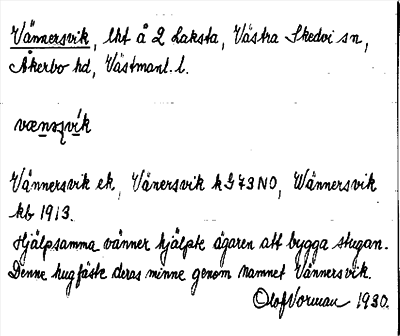 Vännersvik, lht å 2 Laksta, Västra Skedvi sn,
Åkerbo hd, Västmanl. l.
vænsʂvik
Vännersvik ek, Vänersvik kG 73 NO, Wännersvik
kb 1913.
Hjälpsamma vänner hjälpte ägaren att bygga stugan.
Denne hugfäste deras minne genom namnet Vännersvik.
Olof Vorman 1930.